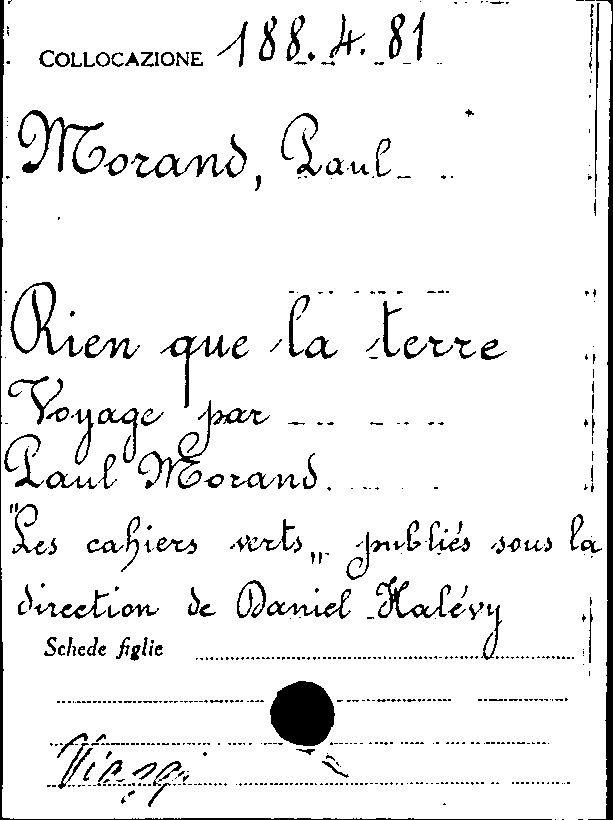 COLLOCAZIONE 188.4.81
Morand, Paul
Rien que la terre
Voyage par
Paul Morand.
"Les cahiers verts„ publiés sous la
direction de Daniel Halévy
Schede figlie
Viaggi